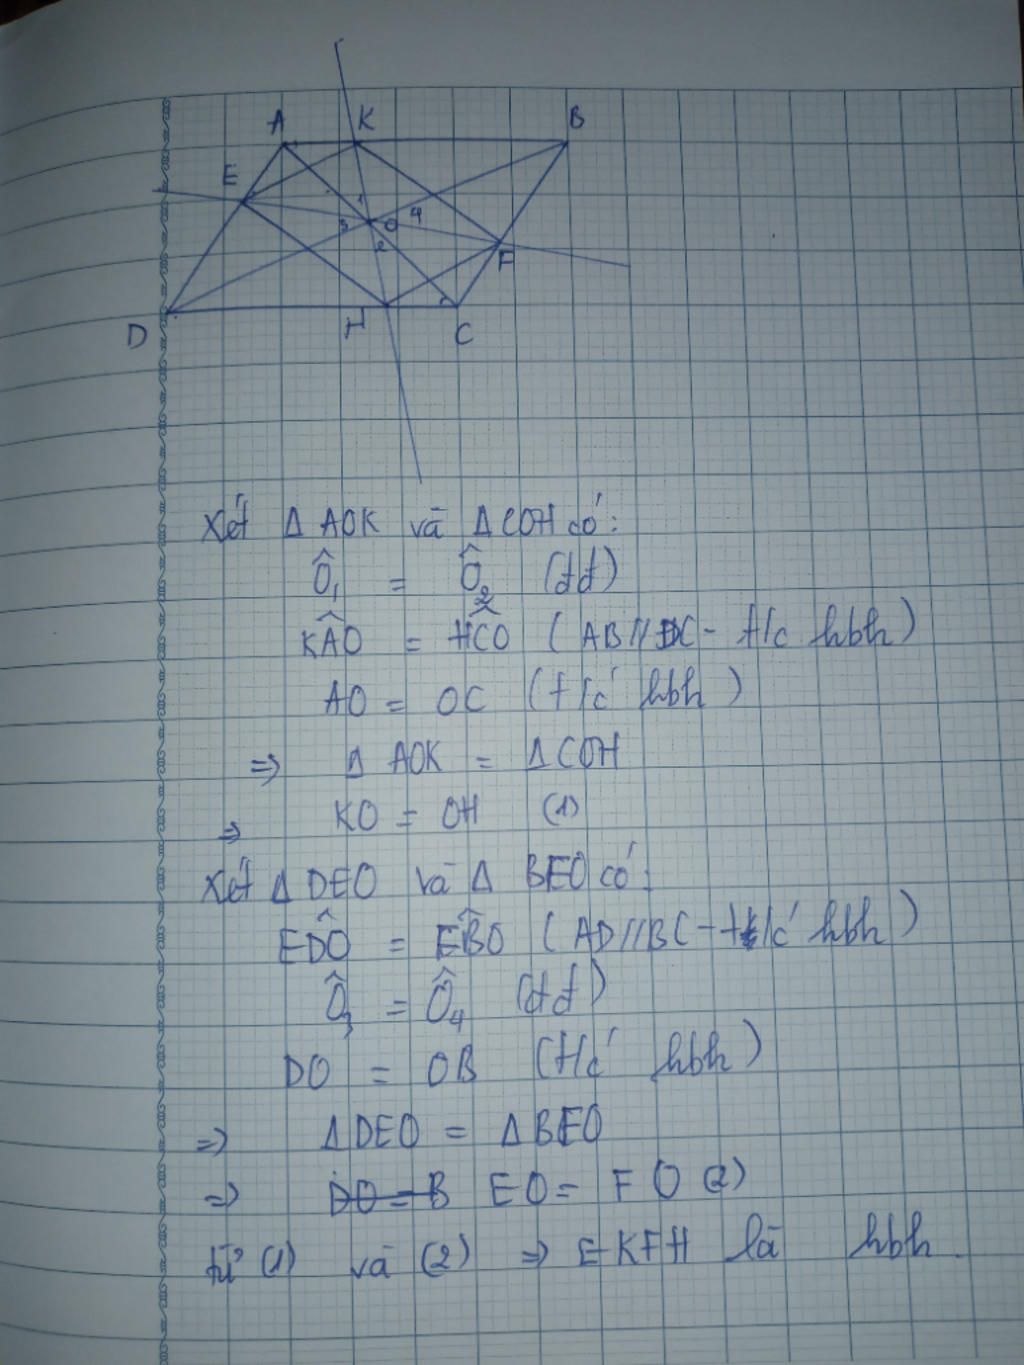 A K B
E
1
3 O 4
2
F
D H C
Xét Δ AOK và Δ COH có:
Ô₁ = Ô₂ (đđ)
KÂO = HĈO (AB//DC - t/c hbh)
AO = OC (t/c hbh)
=> Δ AOK = Δ COH
=> KO = OH (1)
Xét Δ DEO và Δ BFO có:
ED̂O = FB̂O (AD//BC - t/c hbh)
Ô₃ = Ô₄ (đđ)
DO = OB (t/c hbh)
=> Δ DEO = Δ BFO
=> DO = B EO = FO (2)
từ (1) và (2) => EKFH là hbh.